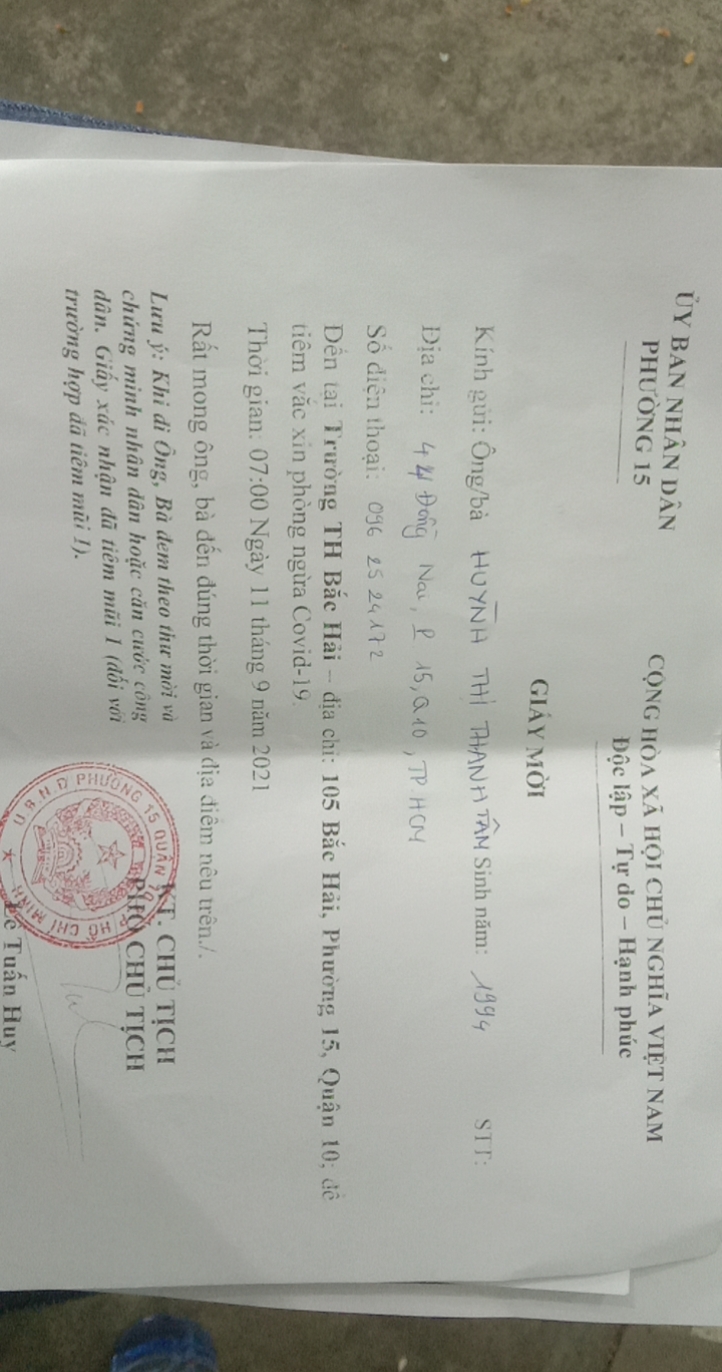 ỦY BAN NHÂN DÂN
PHƯỜNG 15
CỘNG HÒA XÃ HỘI CHỦ NGHĨA VIỆT NAM
Độc lập – Tự do – Hạnh phúc
GIẤY MỜI
Kính gửi: Ông/bà HUỲNH THỊ THANH TÂM Sinh năm: 1994 STT:
Địa chỉ: Đồng Nai, P 15, Q10, TP HCM
Số điện thoại: 096 25 24172
Đến tại Trường TH Bắc Hải – địa chỉ: 105 Bắc Hải, Phường 15, Quận 10; để
tiêm vắc xin phòng ngừa Covid-19.
Thời gian: 07:00 Ngày 11 tháng 9 năm 2021
Rất mong ông, bà đến đúng thời gian và địa điểm nêu trên./.
Lưu ý: Khi đi Ông, Bà đem theo thư mời và
chứng minh nhân dân hoặc căn cước công
dân. Giấy xác nhận đã tiêm mũi 1 (đối với
trường hợp đã tiêm mũi 1).
KT. CHỦ TỊCH
PHÓ CHỦ TỊCH
U.B.N.D PHƯỜNG 15 QUẬN 10
TP HỒ CHÍ MINH
Lê Tuấn Huy